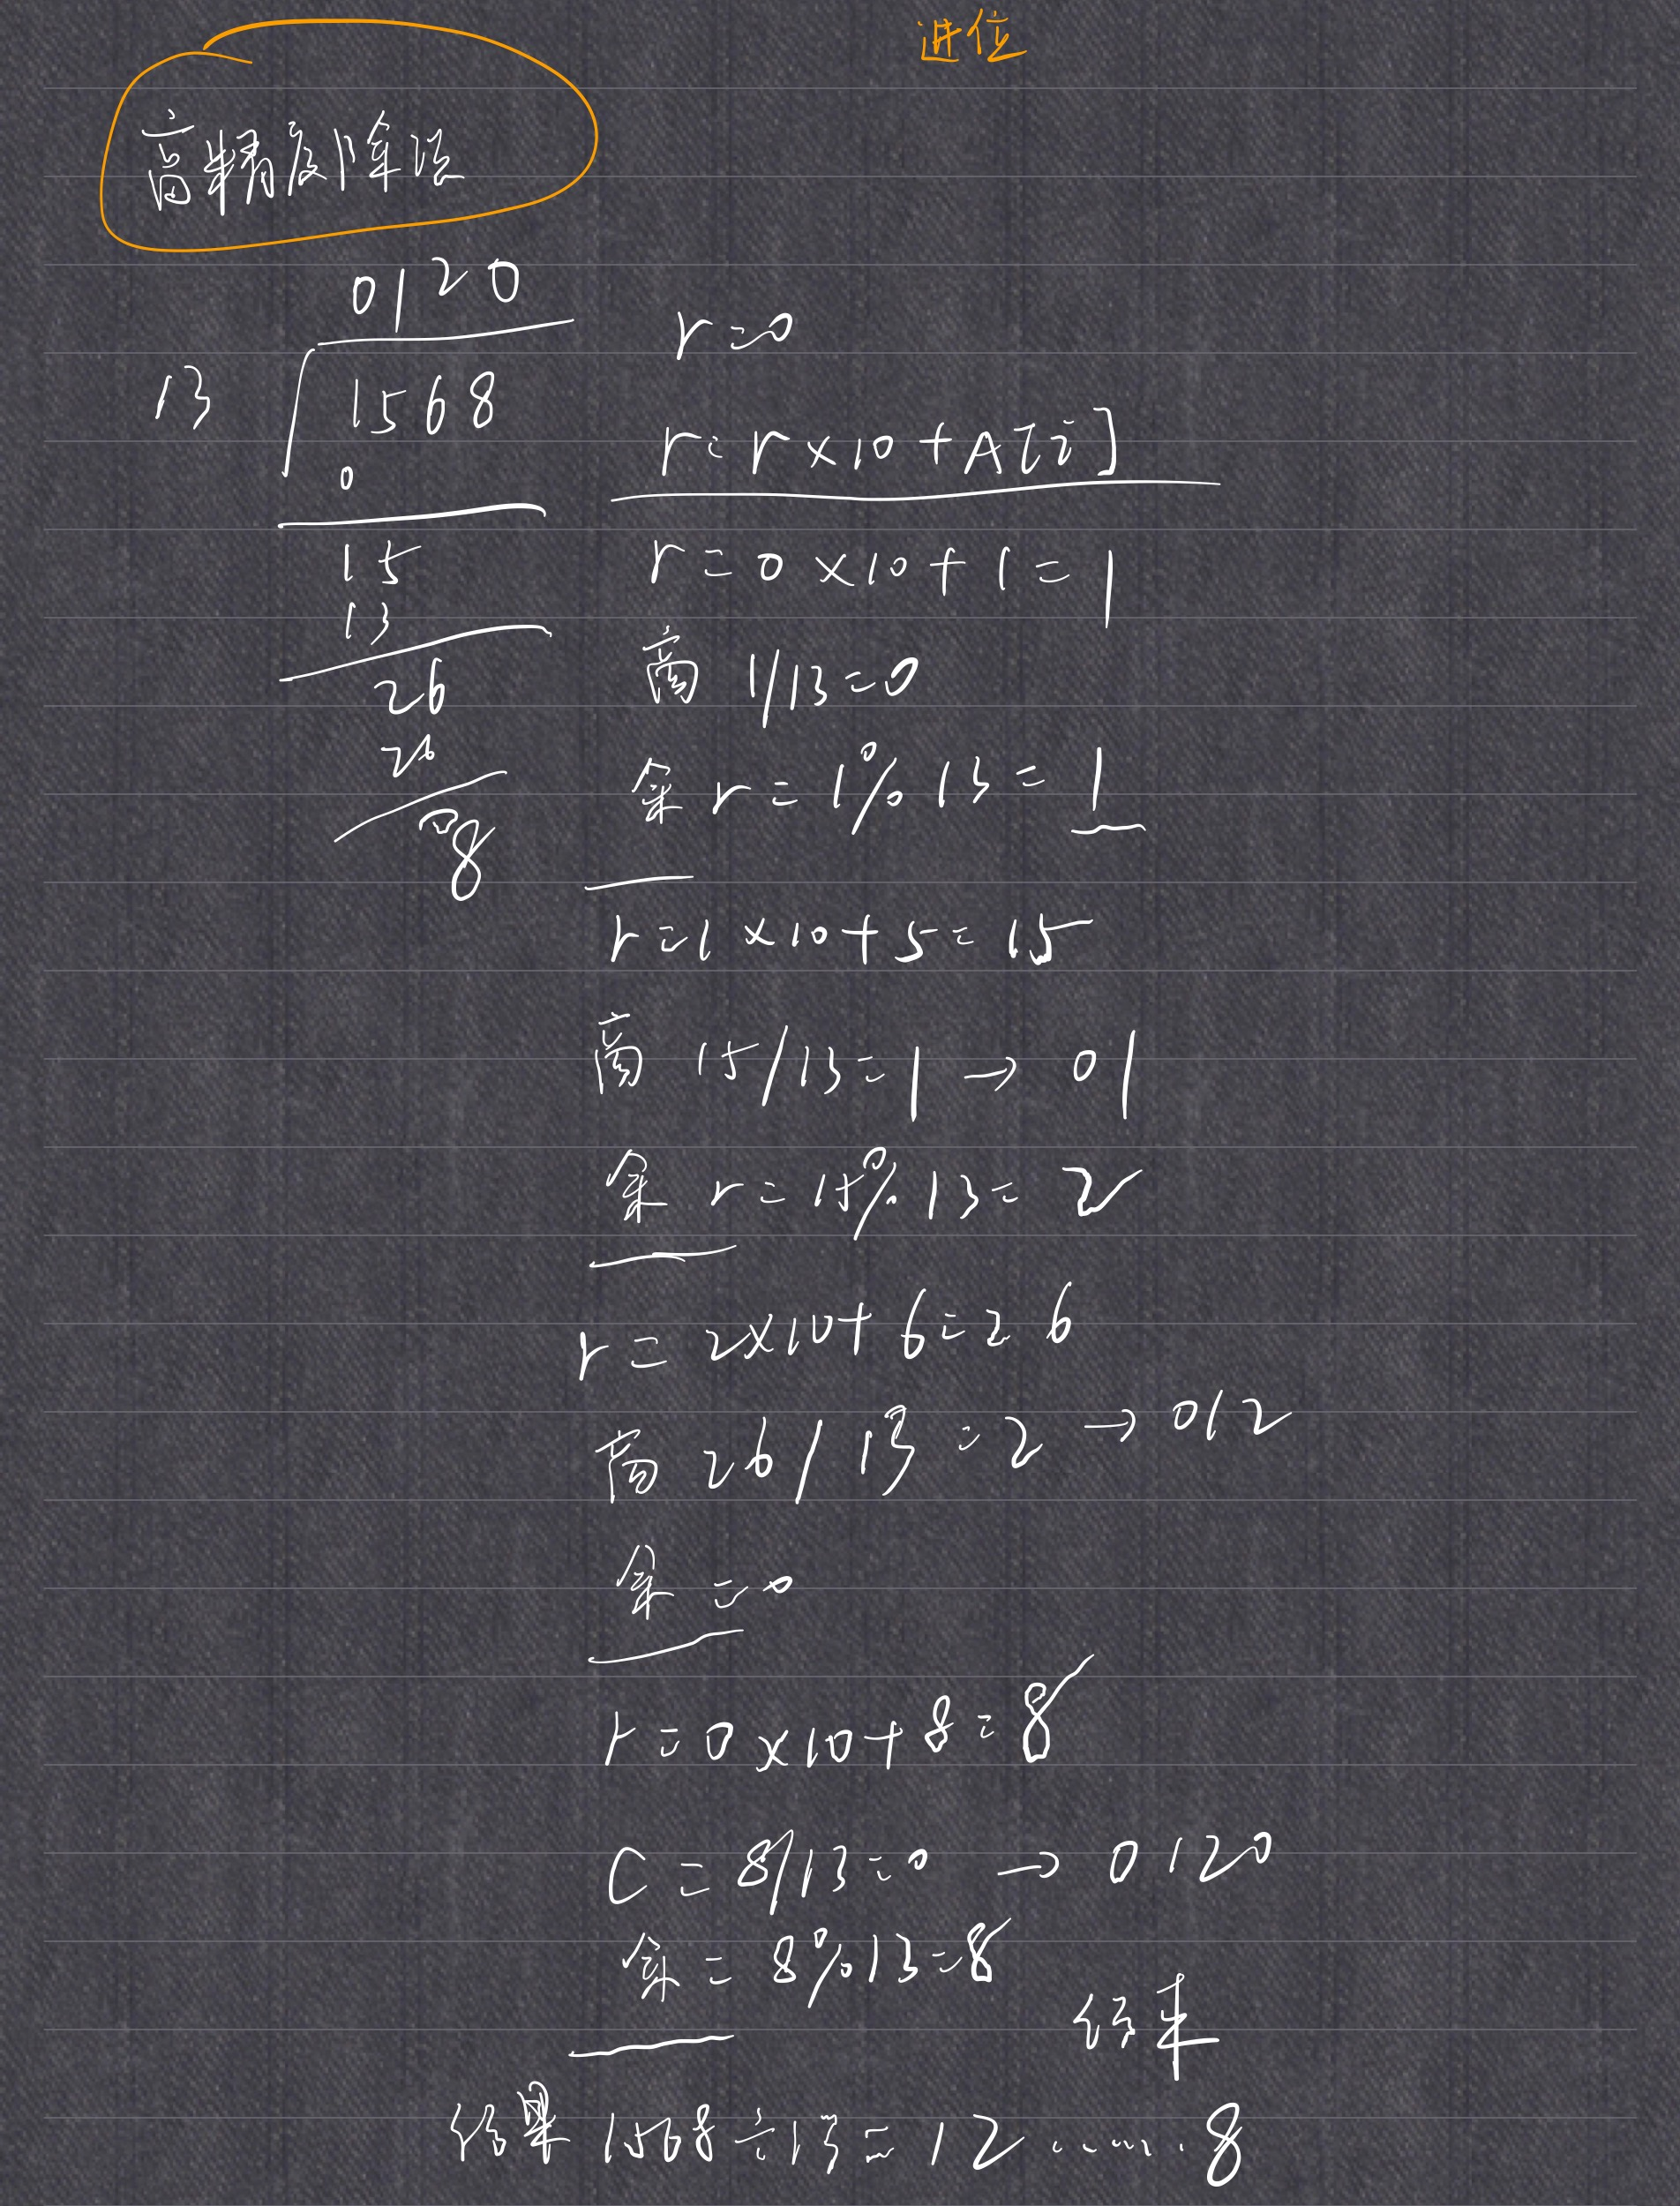 进位
高精度除法
0120
13 1568
0
15
13
26
26
08
r=0
r=r×10+A[i]
r=0×10+1=1
商 1/13=0
余 r=1%13=1
r=1×10+5=15
商 15/13=1→01
余 r=15%13=2
r=2×10+6=26
商 26/13=2→012
余=0
r=0×10+8=8
C=8/13=0→0120
余=8%13=8
结束
结果 1568÷13=12......8